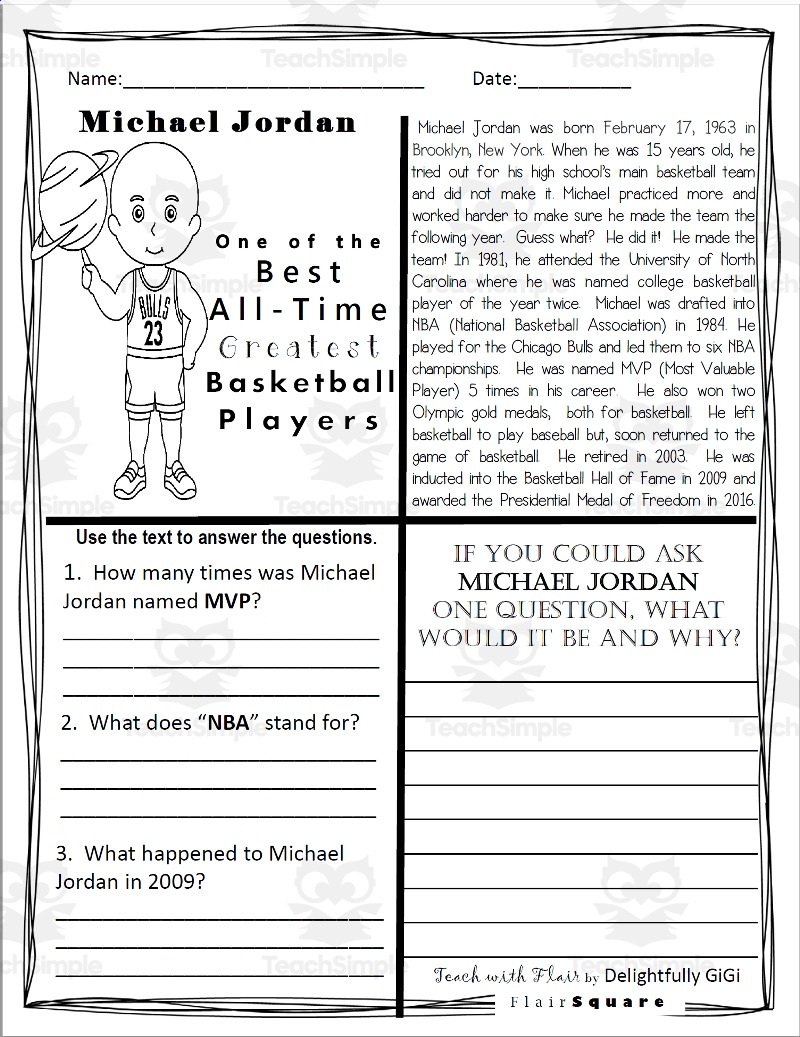 Name:____________________________ Date:___________
Michael Jordan
BULLS
23
One of the
Best
All-Time
Greatest
Basketball
Players
Michael Jordan was born February 17, 1963 in
Brooklyn, New York. When he was 15 years old, he
tried out for his high school's main basketball team
and did not make it. Michael practiced more and
worked harder to make sure he made the team the
following year. Guess what? He did it! He made the
team! In 1981, he attended the University of North
Carolina where he was named college basketball
player of the year twice. Michael was drafted into
NBA (National Basketball Association) in 1984. He
played for the Chicago Bulls and led them to six NBA
championships. He was named MVP (Most Valuable
Player) 5 times in his career. He also won two
Olympic gold medals, both for basketball. He left
basketball to play baseball but, soon returned to the
game of basketball. He retired in 2003. He was
inducted into the Basketball Hall of Fame in 2009 and
awarded the Presidential Medal of Freedom in 2016.
Use the text to answer the questions.
1. How many times was Michael
Jordan named MVP?
2. What does “NBA” stand for?
3. What happened to Michael
Jordan in 2009?
IF YOU COULD ASK
MICHAEL JORDAN
ONE QUESTION, WHAT
WOULD IT BE AND WHY?
Teach with Flair by Delightfully GiGi
FlairSquare
TeachSimple